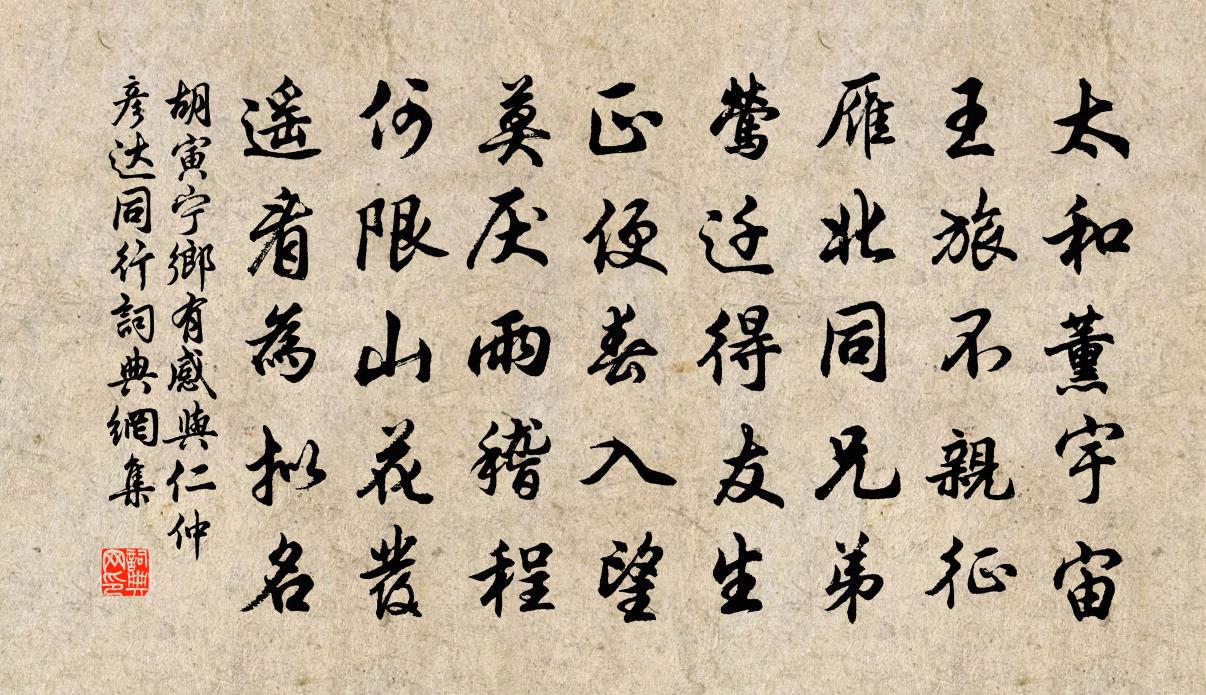 太和薰宇宙
王旅不親征
雁北同兄弟
鶯迁得友生
正便春入望
莫厌雨稽程
何限山花發
遥看為拟名
胡寅宁鄉有感與仁仲
彦达同行詞典網集
詞典网印